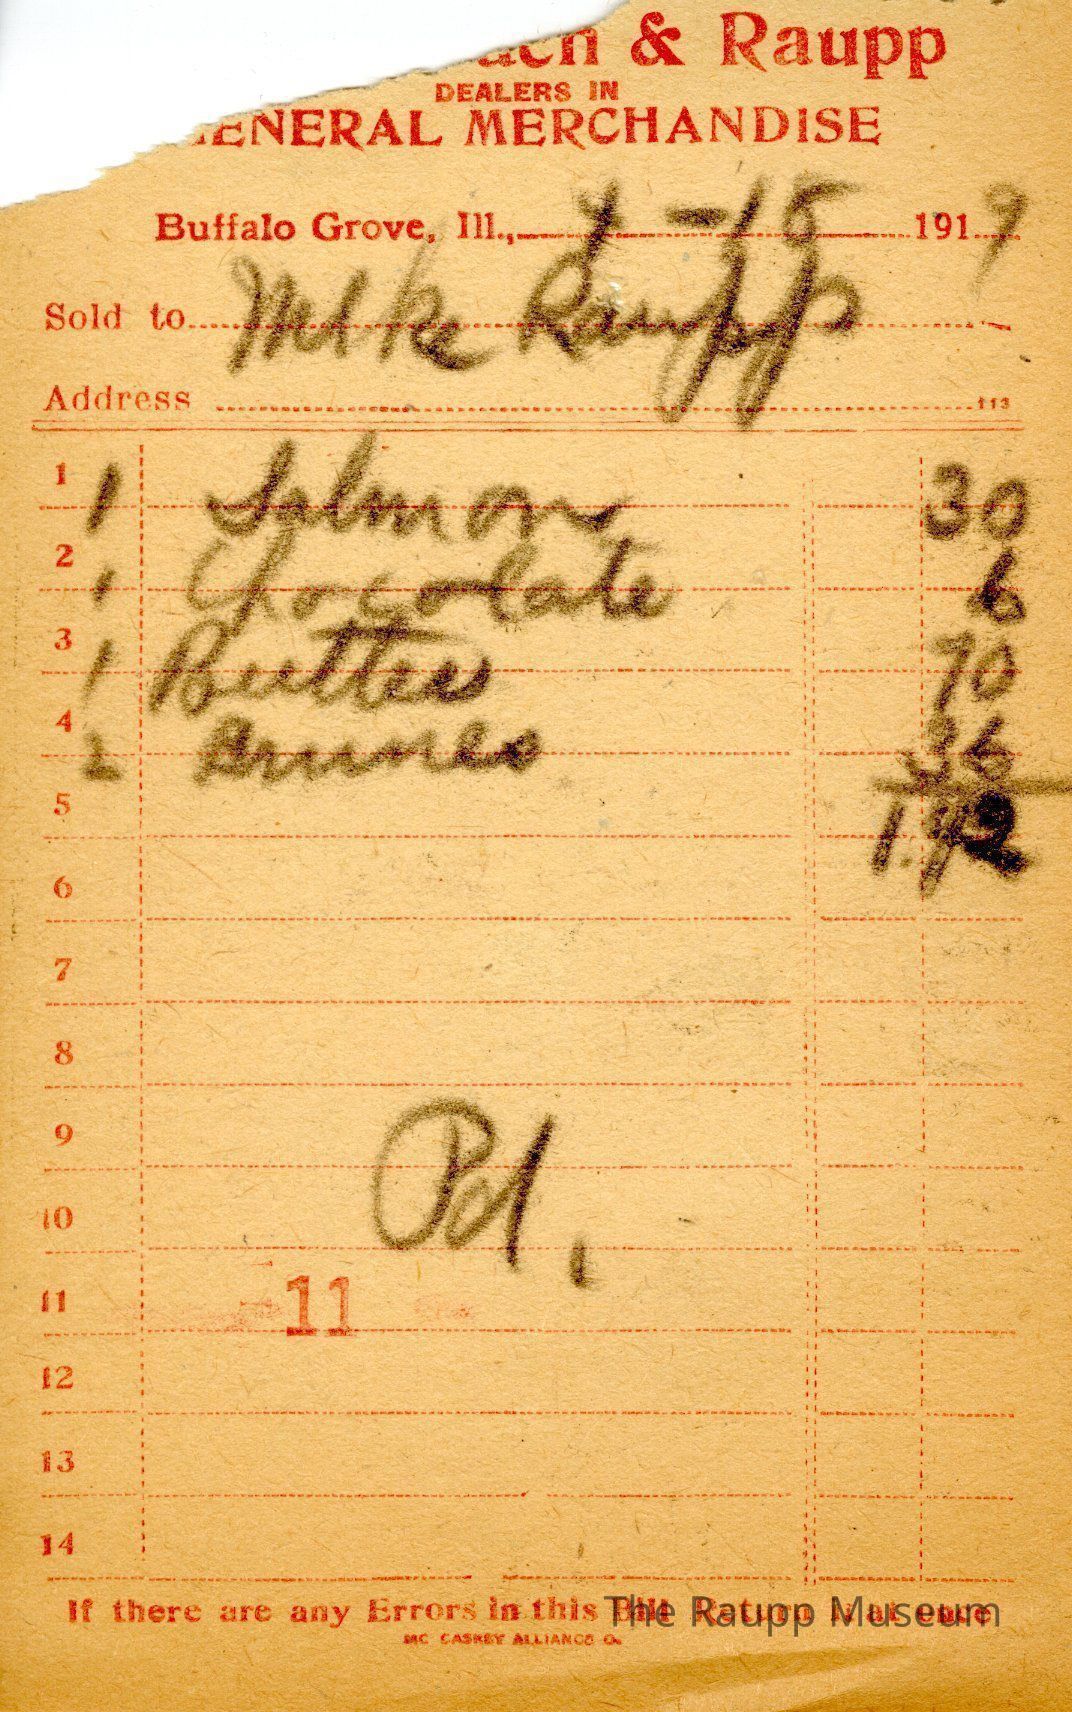 ach & Raupp
DEALERS IN
GENERAL MERCHANDISE
Buffalo Grove, Ill., -15 1919
Sold to Mike Raupp
Address 113
1 1 Salmon 30
2 1 Chocolate 6
3 1 Butter 70
4 2 Prunes 36
5 1.42
6
7
8
9
10 Pd,
11 11
12
13
14
If there are any Errors in this Bill Return it at once
MC CASKEY ALLIANCE O.
The Raupp Museum